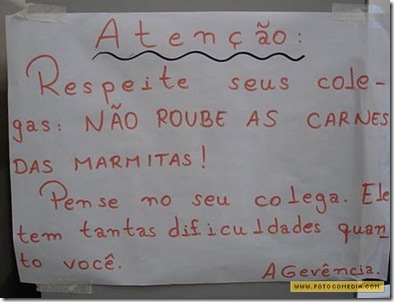 Atenção:
Respeite seus cole-
gas: NÃO ROUBE AS CARNES
DAS MARMITAS!
Pense no seu colega. Ele
tem tantas dificuldades quan-
to você.
A Gerência.
WWW.FOTOCOMEDIA.COM